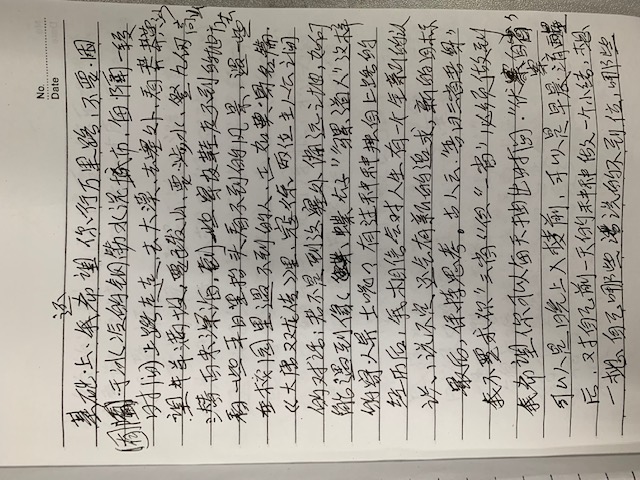 No.
Date
还
基础上,我希望你行万里路,不要困
囿于冰冷的钢筋水泥城市,每隔一段
时间上路走走,去大漠,去塞外,看莽莽黄沙
望牛羊满坡,要跋山,要涉水,登九仞高山
潜百米深海,到一些穿皮鞋去不到的地方去
看一些平日里抬头看不到的风景,遇一些
在校园里遇不到的人,正如黄易名篇
《大唐双龙传》里,寇徐两位主人公之间
的对话:若不是到这塞外偏远之地,如何
能遇到像"蝶公子""骡道人"这样
的奇人异士呢?有过种种独自上路的
经历后,我相信会对人生有一个全新的认
识,说不定还会有新的追求,新的目标
最后,保持思考。古人云"吾日三省吾身"
我不要求你"三省"但"一省"必须做到
我希望你可以每天抽出时间"伏案自省"
可以是晚上入寝前,可以是早晨清醒
后,对自己前一天的种种做一个小结,想
一想自己哪些话说的不到位,哪些